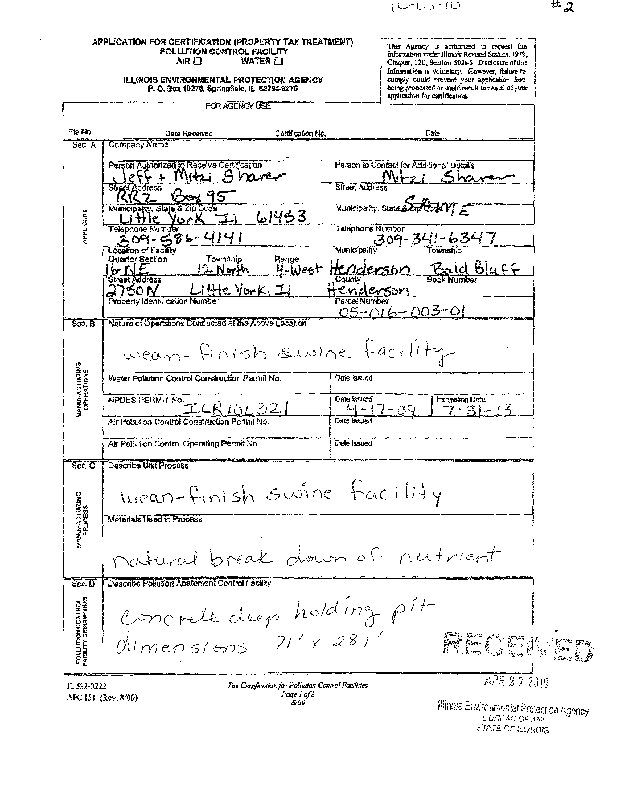 #2
APPLICATION FOR CERTIFICATION (PROPERTY TAX TREATMENT)
POLLUTION CONTROL FACILITY
AIR ☐ WATER ☐
ILLINOIS ENVIRONMENTAL PROTECTION AGENCY
P. O. Box 19276, Springfield, IL 62794-9276
This Agency is authorized to request this
information under Illinois Revised Statutes, 1979,
Chapter 120, Section 502a-5. Disclosure of this
information is voluntary. However, failure to
comply could prevent your application from
being processed or could result in denial of your
application for certification.
FOR AGENCY USE
File No. Date Received Certification No. Date
Sec. A Company Name
APPLICANT
Person Authorized to Receive Certification Person to Contact for Additional Details
Jeff + Mitzi Sharer Mitzi Sharer
Street Address Street Address
RR2 Box 95
Municipality, State & Zip Code Municipality, State
Little York Il 61453 SAME
Telephone Number Telephone Number
309-586-4141 309-341-6347
Location of Facility Municipality Township
Quarter Section Township Range
16 NE 12 North 4-West Henderson Bald Bluff
Street Address County Book Number
2750N Little York, Il Henderson
Property Identification Number Parcel Number
05-016-003-01
Sec. B Nature of Operations Conducted at the Above Location
MANUFACTURING OPERATIONS
wean-finish swine facility
Water Pollution Control Construction Permit No. Date Issued
NPDES PERMIT No. Date Issued Expiration Date
ILR10L321 4-17-09 7-31-13
Air Pollution Control Construction Permit No. Date Issued
Air Pollution Control Operating Permit No. Date Issued
Sec. C Describe Unit Process
MANUFACTURING PROCESS
wean-finish swine facility
Materials Used in Process
natural break down of nutrient
Sec. D Describe Pollution Abatement Control Facility
POLLUTION CONTROL FACILITY DESCRIPTION
concrete deep holding pit
dimensions 71' x 281'
RECEIVED
IL 532-0222
APC 151 (Rev. 8/00)
Tax Certification for Pollution Control Facilities
Page 1 of 2
Illinois Environmental Protection Agency
BUREAU OF AIR
STATE OF ILLINOIS